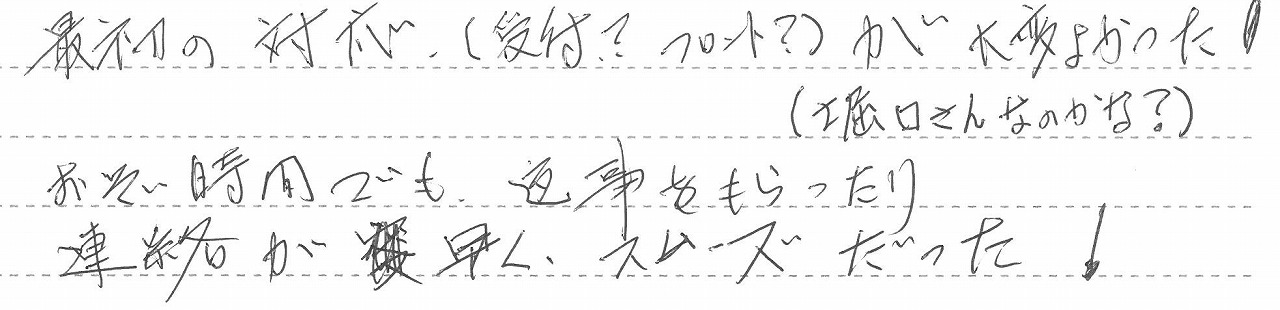 最初の対応、(受付?フロント?)が大変よかった!
(堀口さんなのかな?)
おそい時間でも、返事をもらったり
連絡が早く、スムーズだった!